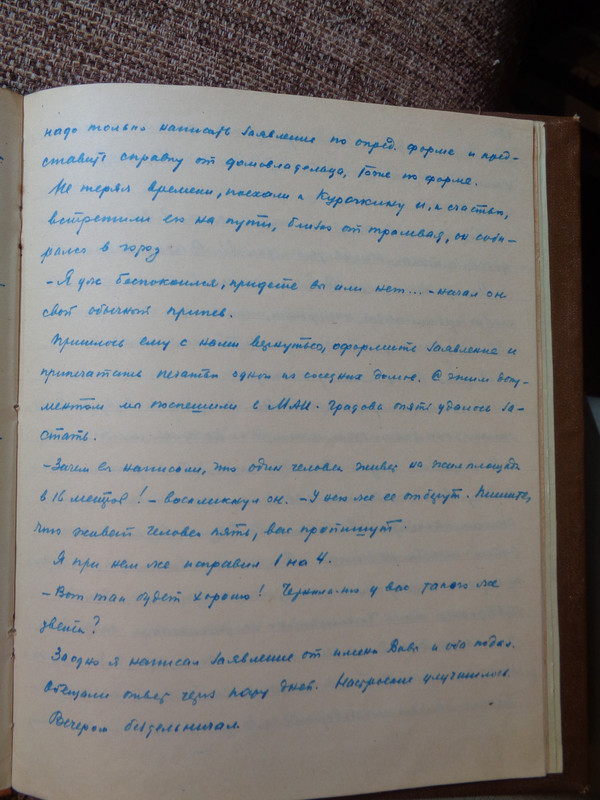 надо только написать заявление по опред. форме и пред-
ставить справку от домовладельца, тоже по форме.
Не теряя времени, поехали к Курочкину и, к счастью,
встретили его на пути, близко от трамвая, он соби-
рался в город
- Я уж беспокоился, придете вы или нет... - начал он
свой обычный припев.
Пришлось ему с нами вернуться, оформить заявление и
припечатать печатью одной из соседних домов. С этим доку-
ментом мы поспешили в МАИ. Градова опять удалось за-
стать.
- Зачем вы написали, что один человек живет на жилплощади
в 16 метров! - воскликнул он. - У него же ее отберут. Пишите,
что живет человек пять, вас пропишут.
Я при нем же исправил 1 на 4.
- Вот так будет хорошо! Чернила-то у вас такого же
цвета?
Заодно я написал заявление от имени Вовы и оба подал.
Обещали ответ через пару дней. Настроение улучшилось.
Вечером бездельничал.